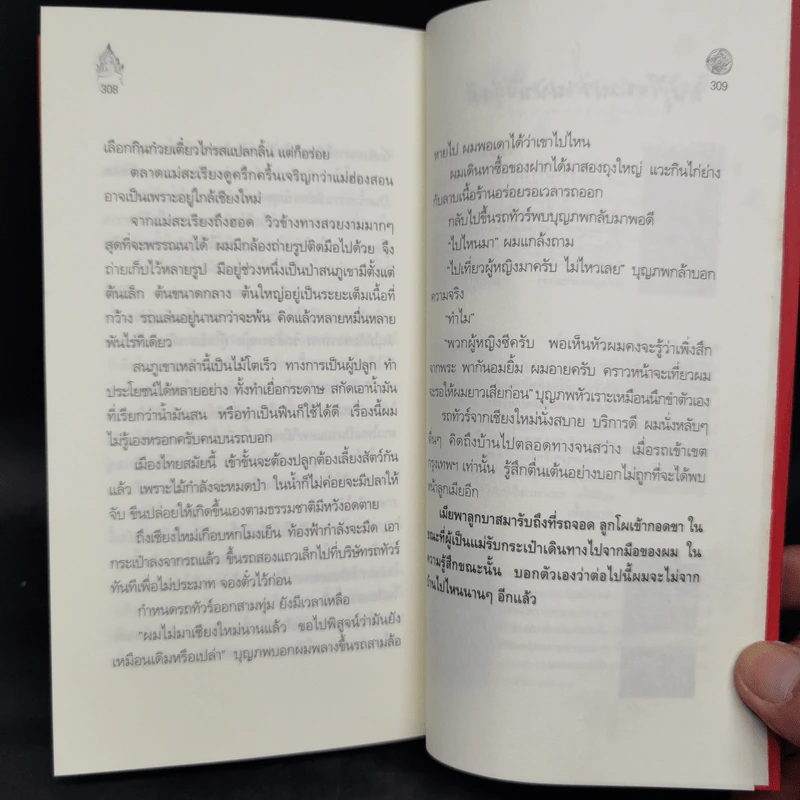 308
เลือกกินก๋วยเตี๋ยวไก่รสแปลกลิ้น แต่ก็อร่อย
ตลาดแม่สะเรียงดูครึกครื้นเจริญกว่าแม่ฮ่องสอน
อาจเป็นเพราะอยู่ใกล้เชียงใหม่
จากแม่สะเรียงถึงฮอด วิวข้างทางสวยงามมากๆ
สุดที่จะพรรณนาได้ ผมมีกล้องถ่ายรูปติดมือไปด้วย จึง
ถ่ายเก็บไว้หลายรูป มีอยู่ช่วงหนึ่งเป็นป่าสนภูเขามีตั้งแต่
ต้นเล็ก ต้นขนาดกลาง ต้นใหญ่อยู่เป็นระยะเต็มเนื้อที่
กว้าง รถแล่นอยู่นานกว่าจะพ้น คิดแล้วหลายหมื่นหลาย
พันไร่ทีเดียว
สนภูเขาเหล่านี้เป็นไม้โตเร็ว ทางการเป็นผู้ปลูก ทำ
ประโยชน์ได้หลายอย่าง ทั้งทำเยื่อกระดาษ สกัดเอาน้ำมัน
ที่เรียกว่าน้ำมันสน หรือทำเป็นฟืนก็ใช้ได้ดี เรื่องนี้ผม
ไม่รู้เองหรอกครับคนบนรถบอก
เมืองไทยสมัยนี้ เข้าขั้นจะต้องปลูกต้องเลี้ยงสัตว์กัน
แล้ว เพราะไม้กำลังจะหมดป่า ในน้ำก็ไม่ค่อยจะมีปลาให้
จับ ขืนปล่อยให้เกิดขึ้นเองตามธรรมชาติมีหวังอดตาย
ถึงเชียงใหม่เกือบหกโมงเย็น ท้องฟ้ากำลังจะมืด เอา
กระเป๋าลงจากรถแล้ว ขึ้นรถสองแถวเล็กไปที่บริษัทรถทัวร์
ทันทีเพื่อไม่ประมาท จองตั๋วไว้ก่อน
กำหนดรถทัวร์ออกสามทุ่ม ยังมีเวลาเหลือ
"ผมไม่มาเชียงใหม่นานแล้ว ขอไปพิสูจน์ว่ามันยัง
เหมือนเดิมหรือเปล่า" บุญภพบอกผมพลางขึ้นรถสามล้อ
309
หายไป ผมพอเดาได้ว่าเขาไปไหน
ผมเดินหาซื้อของฝากได้มาสองถุงใหญ่ แวะกินไก่ย่าง
กับลาบเนื้อร้านอร่อยรอเวลารถออก
กลับไปขึ้นรถทัวร์พบบุญภพกลับมาพอดี
"ไปไหนมา" ผมแกล้งถาม
"ไปเที่ยวผู้หญิงมาครับ ไม่ไหวเลย" บุญภพกล้าบอก
ความจริง
"ทำไม"
"พวกผู้หญิงซีครับ พอเห็นหัวผมคงจะรู้ว่าเพิ่งสึก
จากพระ พากันอมยิ้ม ผมอายครับ คราวหน้าจะเที่ยวผม
จะรอให้ผมยาวเสียก่อน" บุญภพหัวเราะเหมือนนึกขำตัวเอง
รถทัวร์จากเชียงใหม่นั่งสบาย บริการดี ผมนั่งหลับๆ
ตื่นๆ คิดถึงบ้านไปตลอดทางจนสว่าง เมื่อรถเข้าเขต
กรุงเทพฯ เท่านั้น รู้สึกตื่นเต้นอย่างบอกไม่ถูกที่จะได้พบ
หน้าลูกเมียอีก
เมียพาลูกบาสมารับถึงที่รถจอด ลูกโผเข้ากอดขา ใน
ขณะที่ผู้เป็นแม่รับกระเป๋าเดินทางไปจากมือของผม ใน
ความรู้สึกขณะนั้น บอกตัวเองว่าต่อไปนี้ผมจะไม่จาก
บ้านไปไหนนานๆ อีกแล้ว